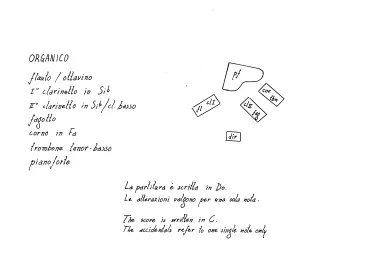 ORGANICO
flauto / ottavino
I° clarinetto in Sib
II° clarinetto in Sib/cl. basso
fagotto
corno in Fa
trombone tenor-basso
pianoforte
pf
fl clI
clII fag
cor tbn
dir
La partitura è scritta in Do.
Le alterazioni valgono per una sola nota.
The score is written in C.
The accidentals refer to one single note only